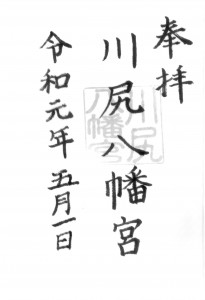 奉拝
川尻八幡宮
川尻
八幡宮
令和元年五月一日